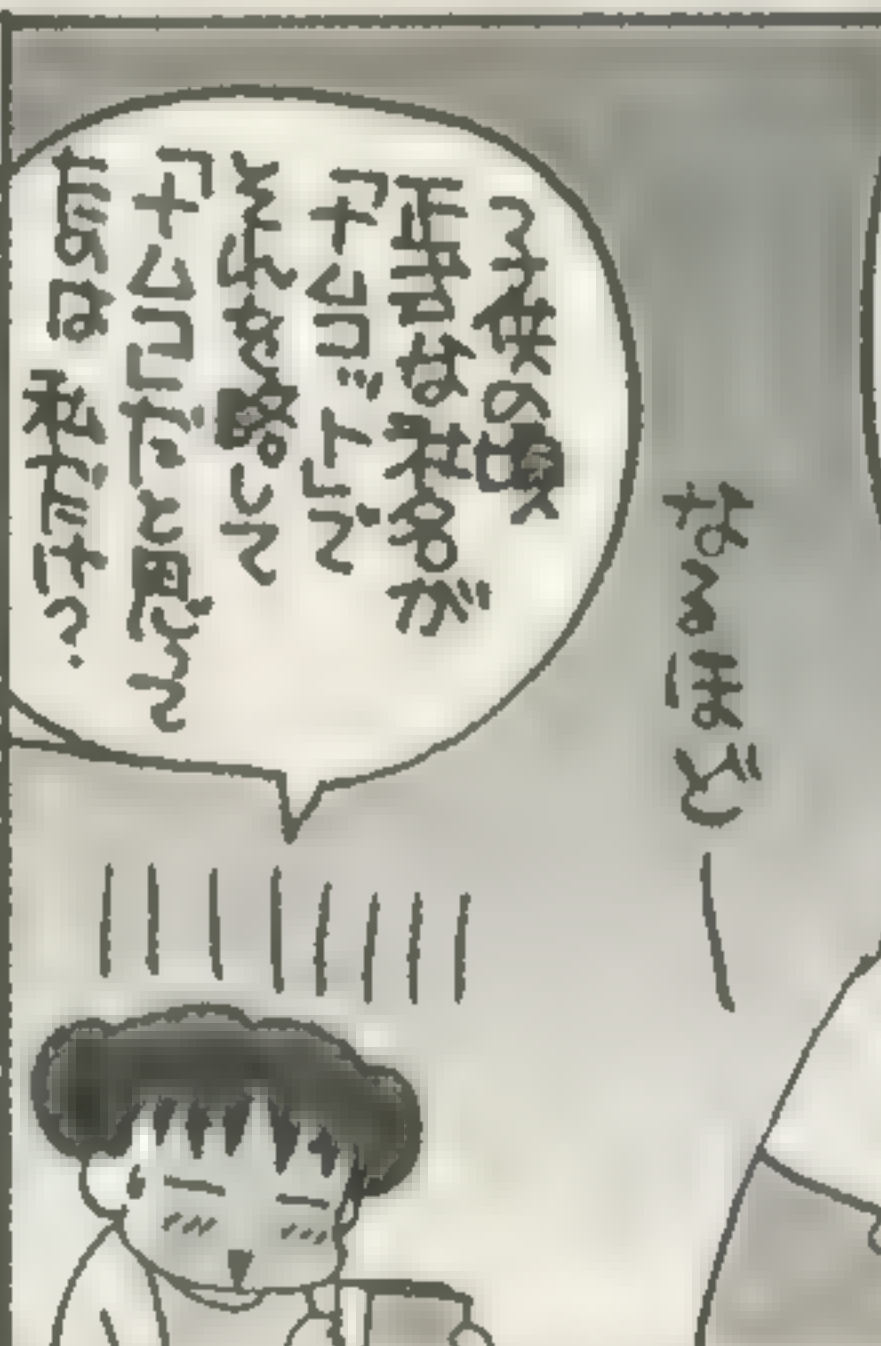 なるほどー
子供の頃
正式には社名が
「ナムコット」で
それを略して
「ナムコ」だと思ってた
のは 私だけ?